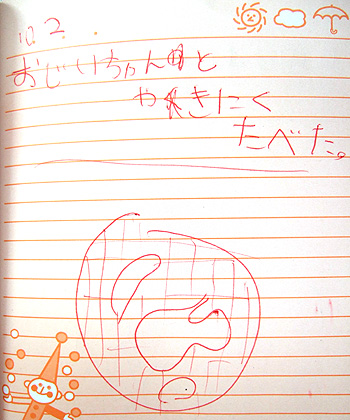 10.2.
おじいちゃんと
やきにく
たべた。